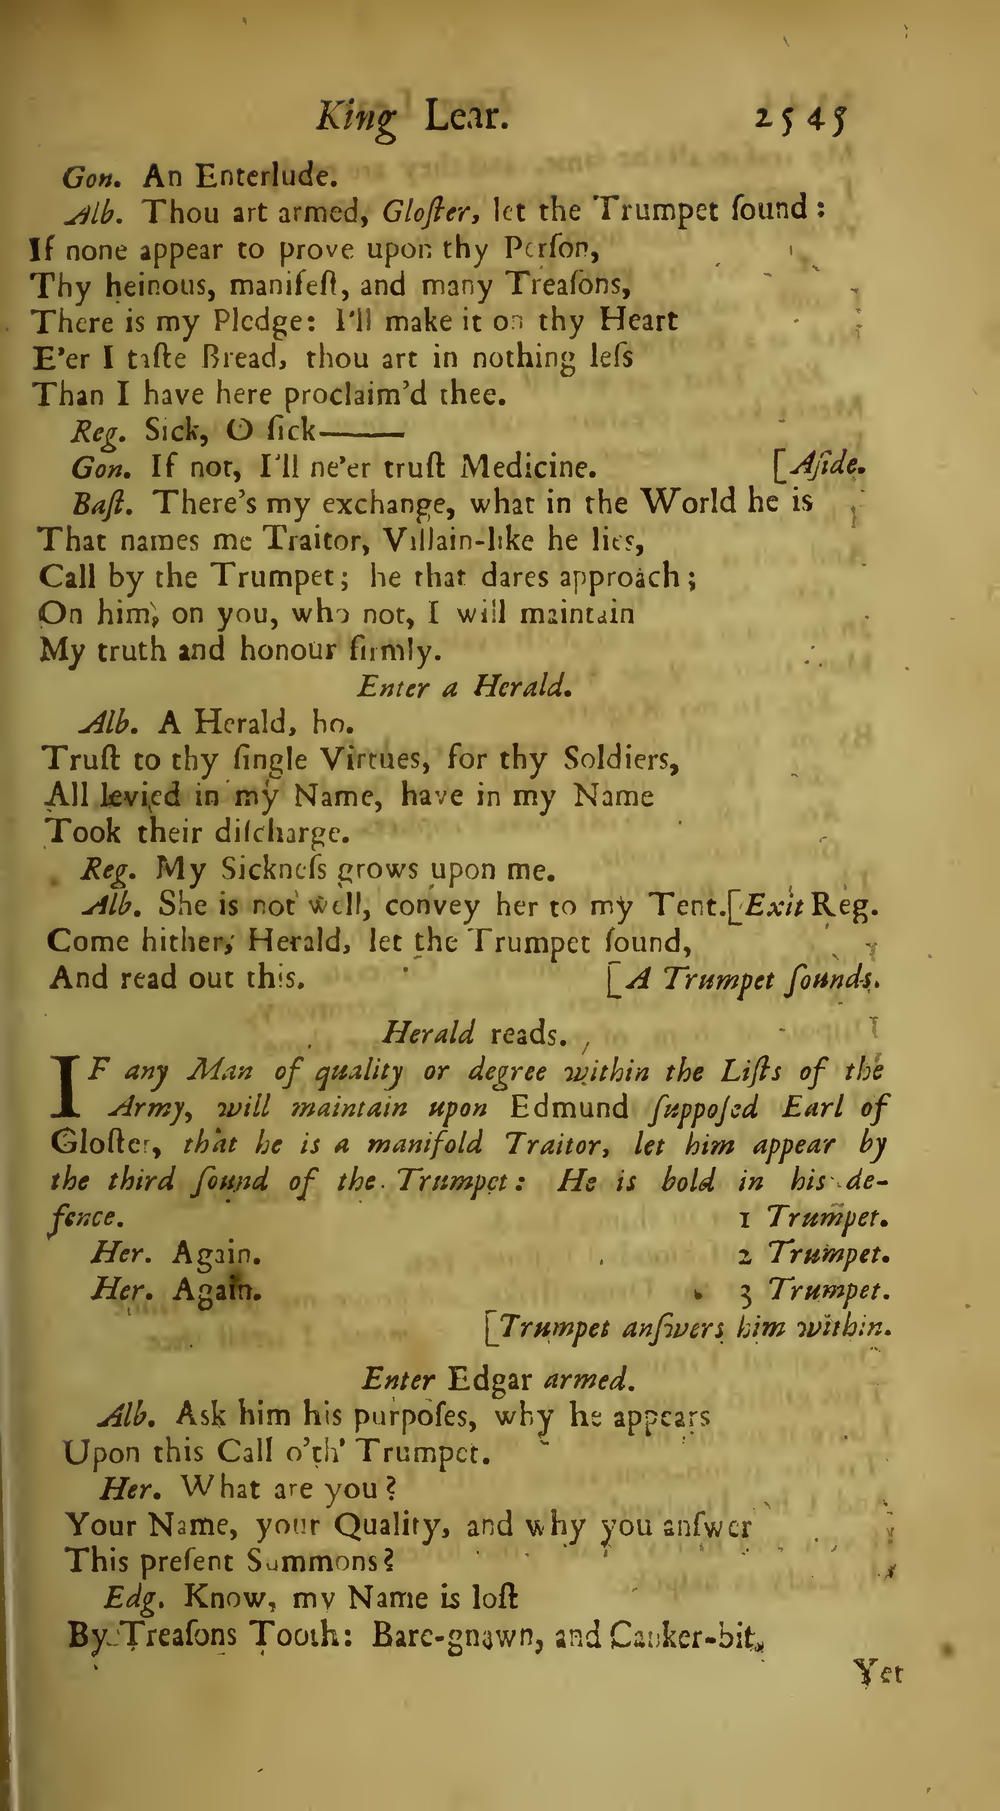 King Lear. 2545
Gon. An Enterlude.
Alb. Thou art armed, Gloſter, let the Trumpet ſound:
If none appear to prove upon thy Perſon,
Thy heinous, manifeſt, and many Treaſons,
There is my Pledge: I'll make it on thy Heart
E'er I taſte Bread, thou art in nothing leſs
Than I have here proclaim'd thee.
Reg. Sick, O ſick———
Gon. If not, I'll ne'er truſt Medicine. [Aſide.
Baſt. There's my exchange, what in the World he is
That names me Traitor, Villain-like he lies,
Call by the Trumpet; he that dares approach;
On him, on you, who not, I will maintain
My truth and honour firmly.
Enter a Herald.
Alb. A Herald, ho.
Truſt to thy ſingle Virtues, for thy Soldiers,
All levied in my Name, have in my Name
Took their diſcharge.
Reg. My Sickneſs grows upon me.
Alb. She is not well, convey her to my Tent.[Exit Reg.
Come hither, Herald, let the Trumpet ſound,
And read out this. [A Trumpet ſounds.
Herald reads.
IF any Man of quality or degree within the Liſts of the
Army, will maintain upon Edmund ſuppoſed Earl of
Gloſter, that he is a manifold Traitor, let him appear by
the third ſound of the Trumpet: He is bold in his de-
fence. 1 Trumpet.
Her. Again. 2 Trumpet.
Her. Again. 3 Trumpet.
[Trumpet anſwers him within.
Enter Edgar armed.
Alb. Ask him his purpoſes, why he appears
Upon this Call o'th' Trumpet.
Her. What are you?
Your Name, your Quality, and why you anſwer
This preſent Summons?
Edg. Know, my Name is loſt
By Treaſons Tooth: Bare-gnawn, and Canker-bit,
Yet